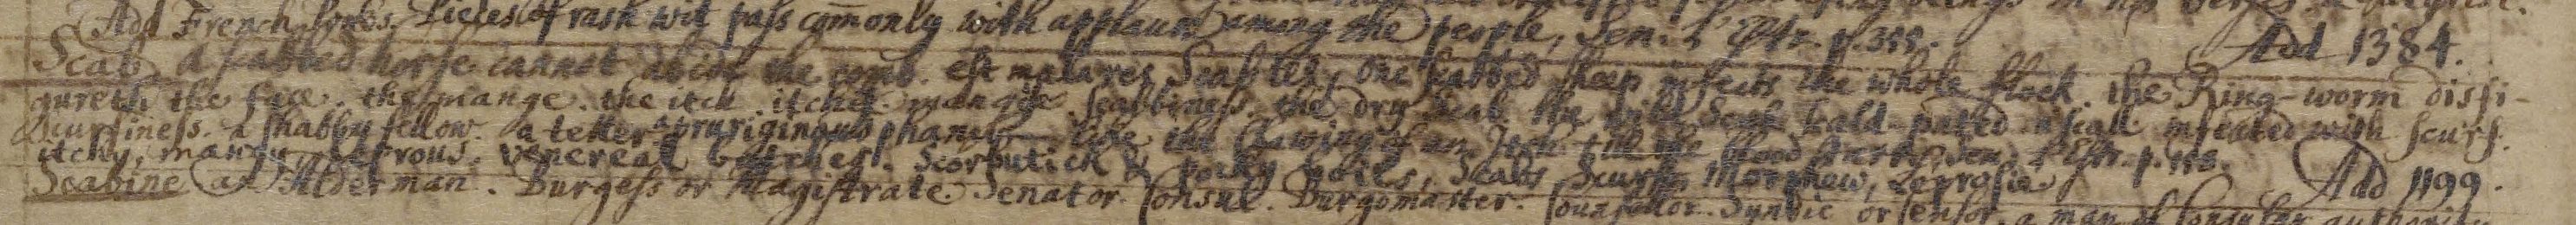 Add French forks. Pieces of rash wit pass com̄only with applause among the people, Sen. L'Estr. p. 355.
Add 1384.
Scab. A scabbed horse cannot abide the comb. est mala res Scabies, one scabbed sheep infects the whole flock. the Ring-worm disfi-
gureth the face. the mange. the itch. itches. mangie. scabbiness. the dry Scab. the wild Scab. scald-pated. a scall. infected with scurf.
scurfiness. a shabby fellow. a tetter. a pruriginous phancy like the Clawing of an Itch till the blood starts, Sen. L'Estr. p.
itchy, mangy, leprous. venereal botches. Scorbutick & pocky boils, Scabs Scurfs Morphew, Leprosie
Add 1199.
Scabine an Alderman. Burgess or Magistrate. Senator. Consul. Burgomaster. Counsellor. Syndic or Censor. a man of Consular authority